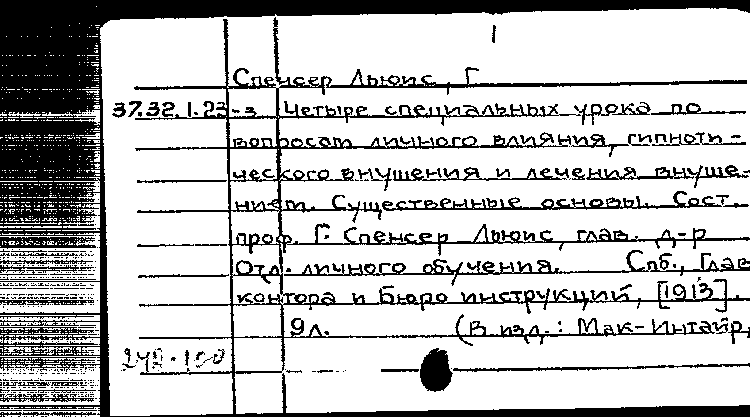 1
Спенсер Льюис, Г
37.32.1.23-з Четыре специальных урока по
вопросам личного влияния, гипноти-
ческого внушения и лечения внуше-
нием. Существенные основы. Сост.
проф. Г. Спенсер Льюис, глав. д-р
Отд. личного обучения. Спб., Глав
контора и Бюро инструкций, [1913].
9л. (В изд.: Мак-Интайр,